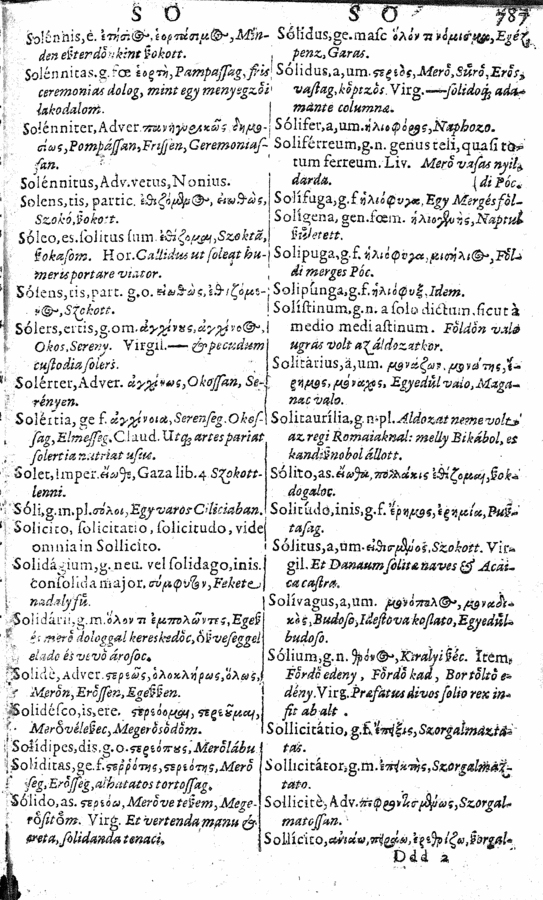 S O
Solénnis, e. ἐτήσιος, ἑορτάσιμος, Min-
den eszterdönkint szokott.
Solénnitas. g. fœ ἑορτὴ, Pampassag, fris
ceremonias dolog, mint egy menyegzöi
lakodalom.
Solénniter, Adver. πανηγυρικῶς δημο-
σίως, Pompássan, Frissen, Geremonias-
san.
Solénnitus, Adv. vetus, Nonius.
Solens, tis, partic. ἐθιζόμενος, εἰωθὼς,
Szokó, szokott.
Sóleo, es. solitus sum. ἐθίζομαι, Szoktá,
szokasom. Hor. Callidus ut soleat hu-
meris portare viator.
Sólens, tis, part. g. o. εἰωθὼς, ἐθιζόμε-
νος, Szokott.
Sólers, ertis, g. om. ἀγχίνους, ἀγχίνοος,
Okos, Sereny. Virgil. — & pecudum
custodia solers.
Solérter, Adver. ἀγχίνως, Okossan, Se-
rényen.
Solèrtia, ge f. ἀγχίνοια, Serenseg. Okos-
sag, Elmesseg. Claud. Utq; artes pariat
solertia nutriat usus.
Solet, Imper. εἴωθε, Gaza lib. 4 Szokott-
lenni.
Sóli, g. m. pl. σόλοι, Egy varos Ciliciaban.
Solicito, solicitatio, solicitudo, vide
omnia in Sollicito.
Solidágium, g. neu. vel solidago, inis.
consolida major, σύμφυτον, Fekete
nadaly fü.
Solidárii, g. m. ὅλον τι ἐμπολῶντες, Egesz
és merö dologgal kereskedöc, öszveseggel
elado és vevö árosoc.
Solidè, Adver. στερεῶς, ὁλοκλήρως, ὅλως,
Merön, Erössen, Egeszszen.
Solidésco, is, ere. στερεόομαι, στερεῦμαι,
Merövé leszec, Megerösödöm.
Solídipes, dis, g. o. στερεόπους, Merö lábu
Soliditas, ge. f. στερρότης, στερεότης, Merö
seg, Erösseg, alhatatos tortossag.
Sólido, as. στερεόω, Merövé teszem, Mege-
rösitöm. Virg. Et vertenda manu &
creta, solidanda tenaci.
S O 787
Sólidus, ge. masc ὅλόν τι νόμισμα, Egész
penz, Garas.
Sólidus, a, um. στερεὸς, Merö, Sürö, Erös,
vastag, köptzös. Virg. — solidoq; ada-
mante columnæ.
Sólifer, a, um. ἡλιοφόρος, Naphozo.
Soliférreum, g. n. genus teli, quasi to-
tum ferreum. Liv. Merö vasas nyil,
darda. [di Póc.
Solífuga, g. f ἡλιοφυγα, Egy Mergés föl-
Solígena, gen. fœm. ἡλιογενὴς, Naptul
született.
Solipuga, g. f. ἡλιοφυγα, μισήλιος, Föl-
di merges Póc.
Solipúnga, g. f. ἡλιόφυξ, Idem.
Solístinum, g. n. a solo dictum, sicut à
medio mediastinum. Földön valo
ugras volt az áldozatkor.
Solitárius, a, um. μονάζων, μονάτης, ἔ-
ρημος, μοναχος. Egyedül valo, Maga-
nac valo.
Solitaurília, g. n. pl. Aldozat neme volt
az regi Romaiaknal: melly Bikábol, es
kandisznobol állott.
Sólito, as. εἴωθα, πολλάκις ἐθίζομαι, szok-
dogaloc.
Solitúdo, inis, g. f. ἔρημος, ἐρημία, Pusz-
tasag.
Sólitus, a, um. εἰθισμένος, Szokott. Vir-
gil. Et Danaum solitæ naves & Acai-
ca castra.
Solívagus, a, um. μονόπαλος, μοναδι-
κὸς, Budoso, Idestova koslato, Egyedül
budoso.
Sólium, g. n. θρόνος, Kiralyi széc. Item,
Fördö edeny, Fördö kad, Bortöltö e-
dény. Virg. Præfatus divos solio rex in-
fit ab alt .
Sollicitátio, g. f. ἔπειξις, Szorgalmazta-
tas.
Sollicitátor, g. m. ἐπείκτης, Szorgalmaz-
tato.
Sollicitè, Adv. πεφροντισμένως, Szorgal-
matossan.
Sollícito, ἀνιάω, πειράω, ἐρεθίζω, szorgal-
Ddd 2